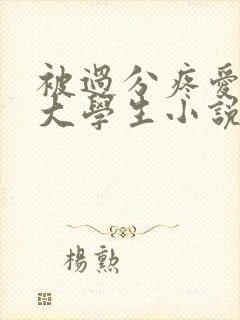 被過分疼愛
大學生小說
楊勲